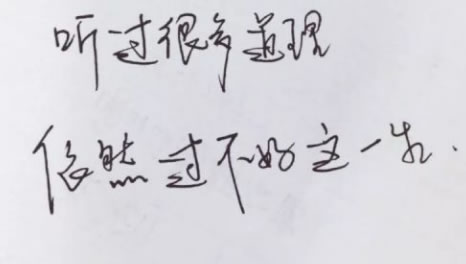 听过很多道理
依然过不好这一生.